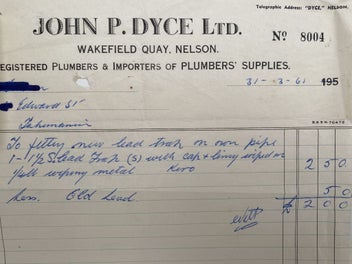 Telegraphic Address: "DYCE," NELSON.
JOHN P. DYCE LTD.
Nº 8004
WAKEFIELD QUAY, NELSON.
REGISTERED PLUMBERS & IMPORTERS OF PLUMBERS' SUPPLIES.
31-3-61 195
Edward St
Tahunanui
To fitting new lead trap on own pipe
1-1½ S Lead Trap (S) with cap + lining wiped on
½ lb wiping metal Kero 2 5 0
less Old Lead. 5 0
£ 2 0 0